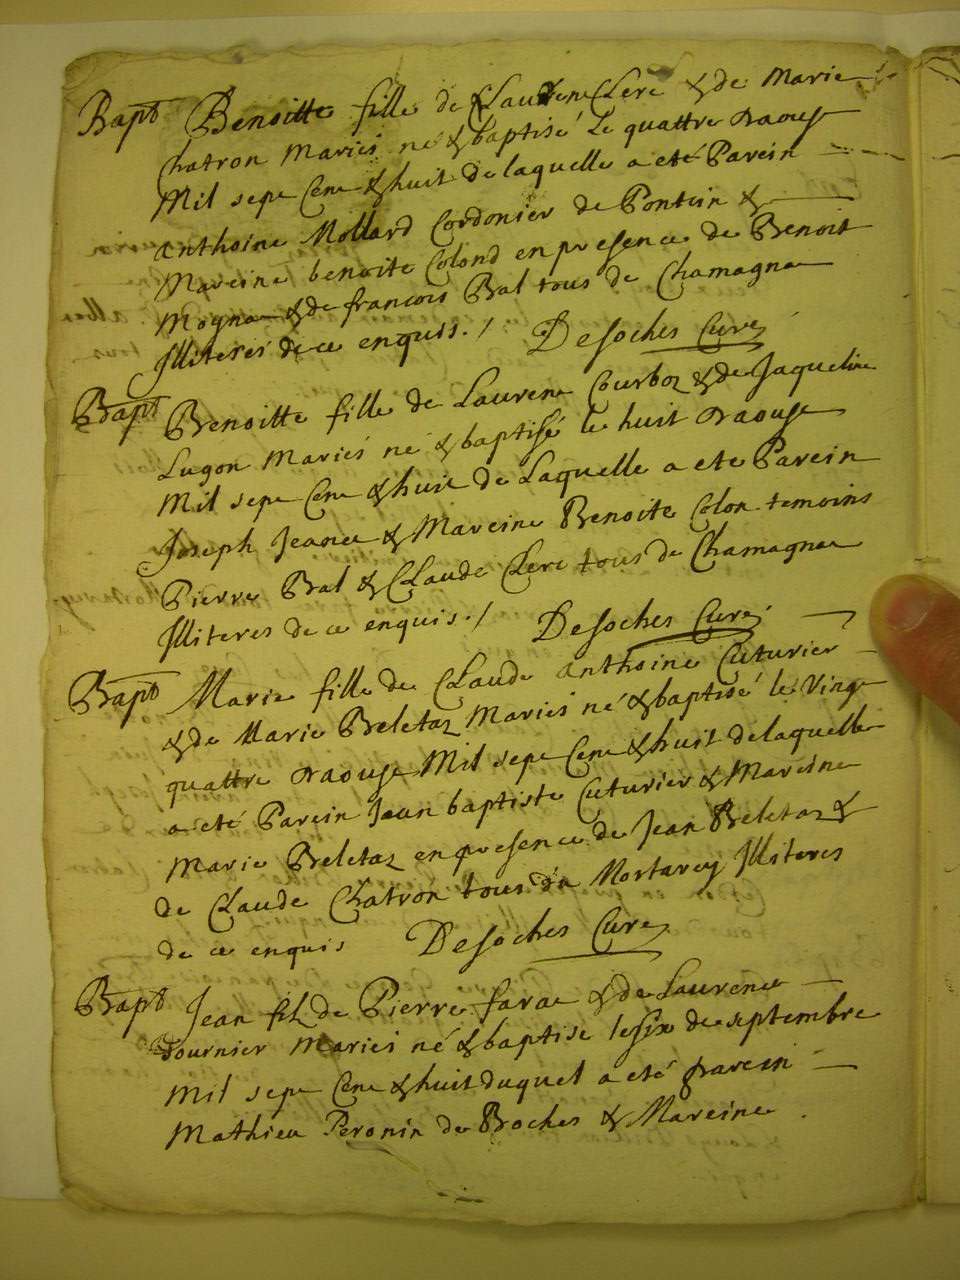 Bapt Benoitte fille de Claude Clerc & de Marie
Chatron Mariés né & baptisé Le quattre daoust
Mil sept Cent & huit de laquelle a eté Parein
anthoine Mollard Cordonier de Pontein &
Mareine benoite Colond en presence de Benoit
Mogna & de francois Bal tous de Chamagna
Jlliteres de ce enquis. / Desoches Curé
Bapt Benoitte fille de Laurent Courboz & de Jaqueline
Lugon Mariés né & baptisé le huit daoust
Mil sept Cent & huit de Laquelle a eté Parein
Joseph Jeance & Mareine Benoite Colon temoins
Pierre Bal & Claude Clerc tous de Chamagna
Jlliteres de ce enquis. / Desoches Curé
Bapt Marie fille de Claude anthoine Cuturier
& de Marie Beletaz Mariés né & baptisé le Vingt
quattre daoust Mil sept Cent & huit de laquelle
a eté Parein Jean baptiste Cuturier & Mareine
Marie Beletaz en presence de Jean Beletaz &
de Claude Chatron tous du Mortarey Jlliteres
de ce enquis Desoches Curé
Bapt Jean filz de Pierre farae & de Laurence
Tournier Mariés né & baptisé le six de septembre
Mil sept Cent & huit duquel a eté parein
Mathieu Peronin de Broches & Mareine